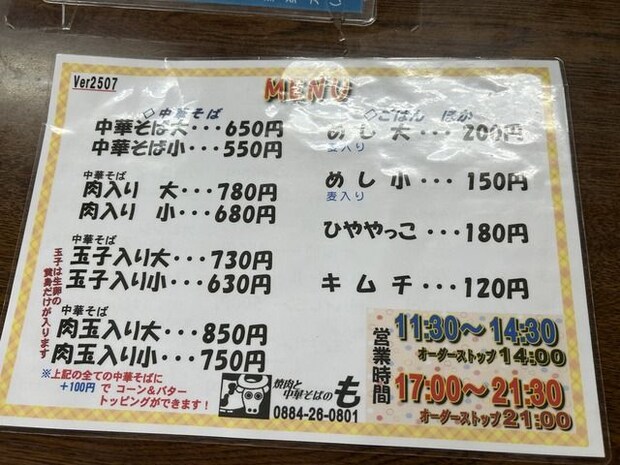 Ver2507
MENU
◇中華そば
中華そば大・・・650円
中華そば小・・・550円
中華そば
肉入り 大・・・780円
肉入り 小・・・680円
中華そば
玉子入り大・・・730円
玉子入り小・・・630円
玉子は生卵の
黄身だけが入ります
中華そば
肉玉入り大・・・850円
肉玉入り小・・・750円
※上記の全ての中華そばに
+100円で コーン&バター
トッピングができます!
◇ごはん ほか
めし 大・・・200円
麦入り
めし 小・・・150円
麦入り
ひややっこ・・・180円
キムチ・・・120円
営業時間
11:30～14:30
オーダーストップ14:00
17:00～21:30
オーダーストップ21:00
焼肉と
中華そばの
も
0884-26-0801